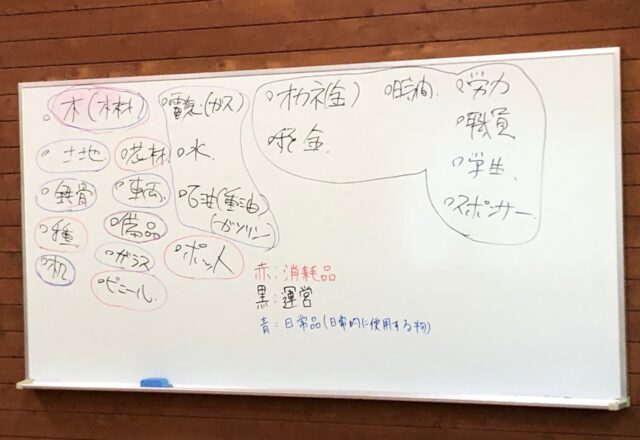 木(木材)
電気(ガス)
オカネ(金)
時間
労力
土地
芯材
水
税金
職員
鉄骨
車
石油(重油)
(ガソリン)
学生
種
備品
スポンサー
机
ガラス
ポット
ビニール
赤:消耗品
黒:運営
青:日常品(日常的に使用する物)